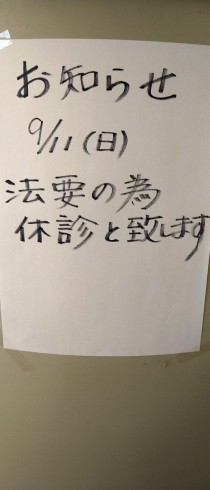 お知らせ
9/11(日)
法要の為
休診と致します